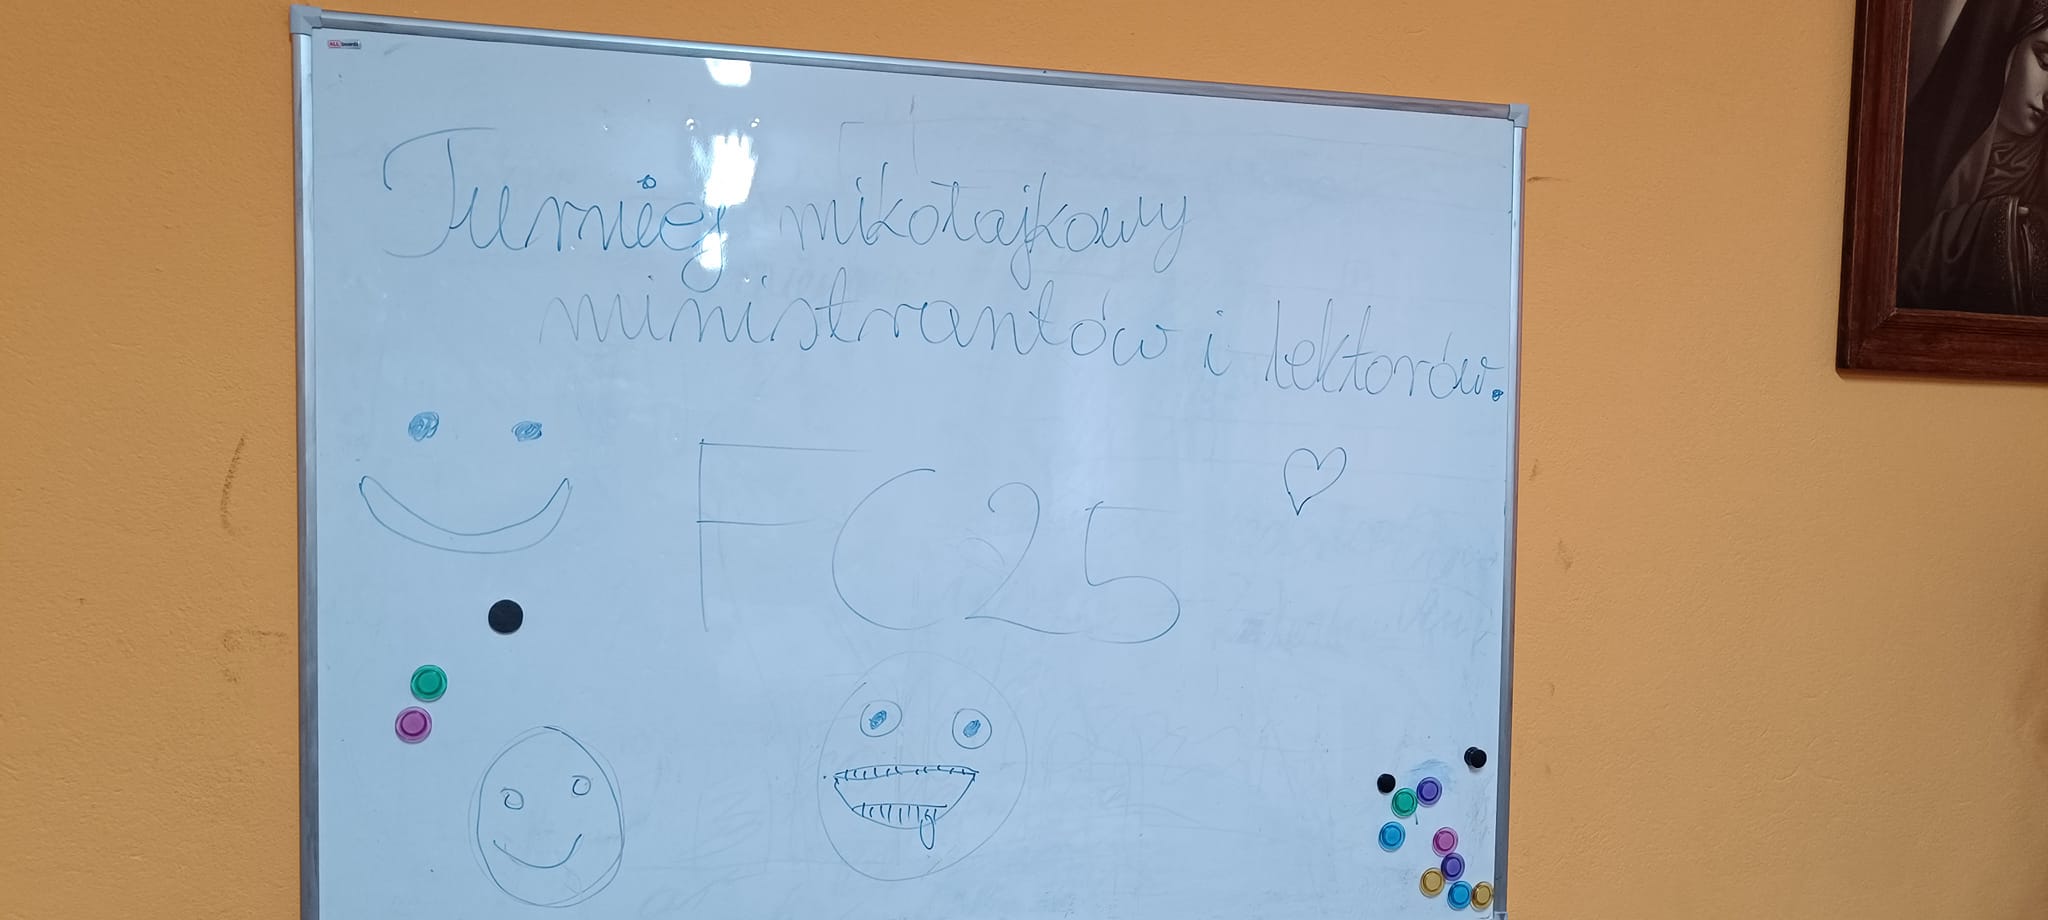 ALLboards
Turniej mikołajkowy
ministrantów i lektorów.
FC25